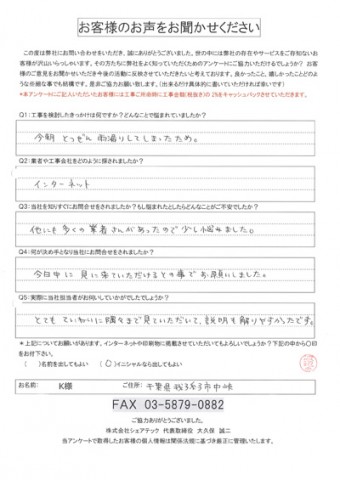 お客様のお声をお聞かせください
この度は弊社にお問い合わせをいただき、誠にありがとうございました。世の中には弊社の存在やサービスをご存知ないお
客様が沢山いらっしゃいます。その方たちに弊社をよく知っていただくためのアンケートにご協力いただけるでしょうか？ お客
様のご意見をお聞かせいただき今後の活動に反映させていただきたいと考えております。良かったこと、嬉しかったことどのよ
うな些細な事でも結構です。是非ご協力お願い致します。（出来るだけ具体的に書いていただければ幸いです）
*本アンケートにご記入いただいたお客様には工事ご依頼時に工事金額(税抜き)の 2%をキャッシュバックさせていただきます。
Q1：工事を検討したきっかけは何ですか？どんなことで悩まれていましたか？
今朝 とつぜん 雨漏りしてしまったため。
Q2：業者や工事会社をどのように探されましたか？
インターネット
Q3：当社を知りすぐにお問合せをされましたか？もし悩まれたとしたらどんなことがご不安でしたか？
他にも多くの業者さんがあったので少し悩みました。
Q4：何が決め手となり当社にお問合せをされましたか？
今日中に見に来ていただけるとの事でお願いしました。
Q5：実際に当社担当者がお伺いしていかがでしたでしょうか？
とてもていねいに隅々まで見ていただいて、説明も解りやすかったです。
＊上記についてお願いがあります。インターネットや印刷物に掲載させていただいてもよろしいでしょうか？下記の中から〇印
をお付け下さい。
（　）名前を出してもよい （〇）イニシャルなら出してもよい
お名前： K様 ご住所： 千葉県我孫子市中峠
FAX 03-5879-0882
ご協力ありがとうございました。
株式会社シェアテック 代表取締役 大久保 誠二
当アンケートで取得したお客様の個人情報は関係法規に基づき厳正に管理いたします。